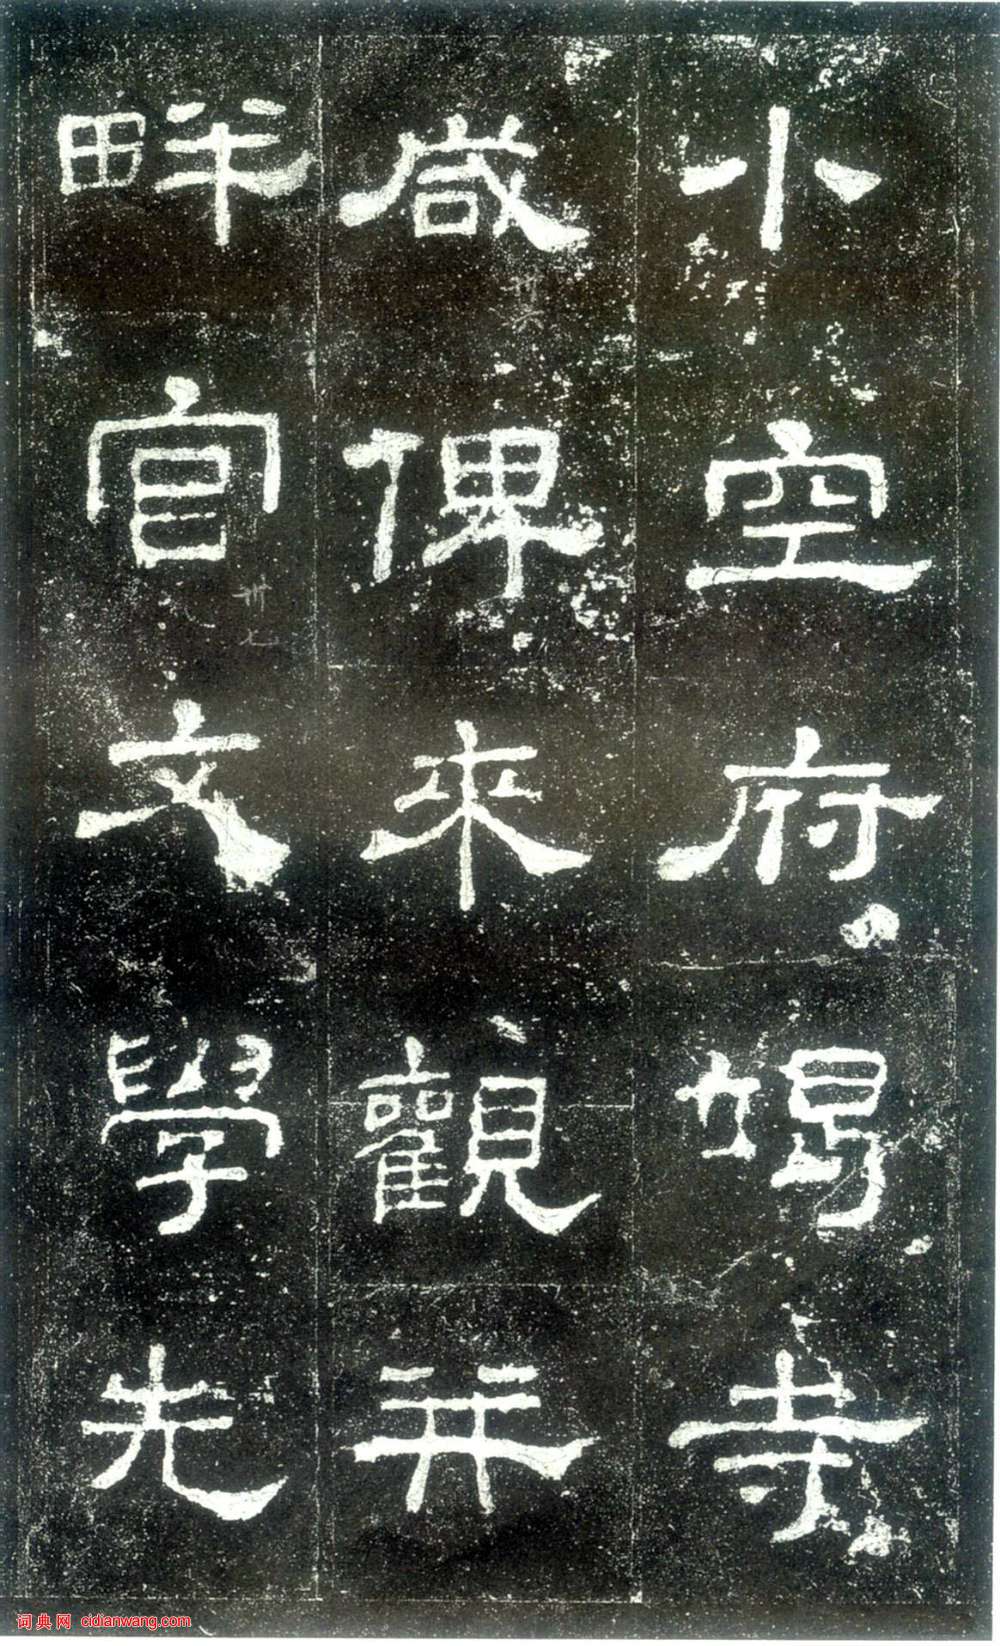 小空府竭寺
咸俾來觀并
畔官文學先
词典网 cidianwang.com